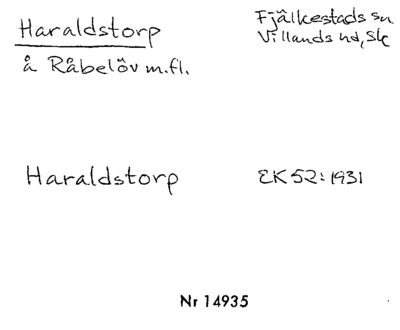 Haraldstorp
Fjälkestads sn
Villands hd, Sk
å Råbelöv m.fl.
Haraldstorp
EK 52: 1931
Nr 14935